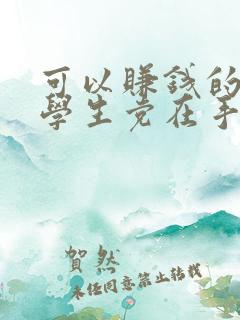 可以賺錢的
學生党在手
賀然
未任同意禁止转载